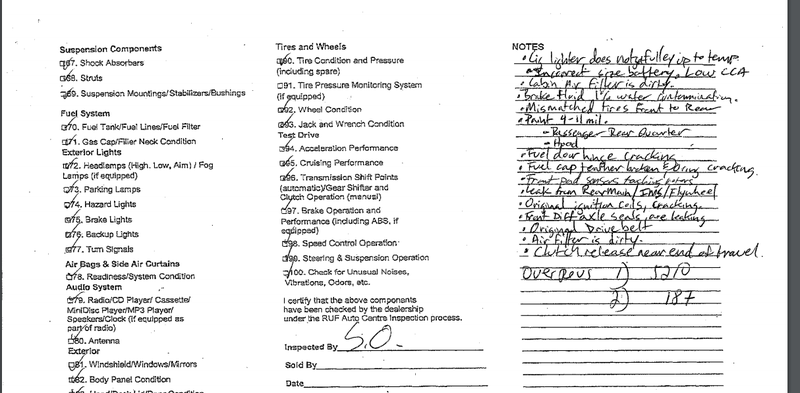 Suspension Components
67. Shock Absorbers
68. Struts
69. Suspension Mountings/Stabilizers/Bushings
Fuel System
70. Fuel Tank/Fuel Lines/Fuel Filter
71. Gas Cap/Filler Neck Condition
Exterior Lights
72. Headlamps (High, Low, Aim) / Fog
Lamps (if equipped)
73. Parking Lamps
74. Hazard Lights
75. Brake Lights
76. Backup Lights
77. Turn Signals
Air Bags & Side Air Curtains
78. Readiness/System Condition
Audio System
79. Radio/CD Player/ Cassette/
MiniDisc Player/MP3 Player/
Speakers/Clock (if equipped as
part of radio)
80. Antenna
Exterior
81. Windshield/Windows/Mirrors
82. Body Panel Condition
Tires and Wheels
90. Tire Condition and Pressure
(including spare)
91. Tire Pressure Monitoring System
(if equipped)
92. Wheel Condition
93. Jack and Wrench Condition
Test Drive
94. Acceleration Performance
95. Cruising Performance
96. Transmission Shift Points
(automatic)/Gear Shifter and
Clutch Operation (manual)
97. Brake Operation and
Performance (including ABS, if
equipped)
98. Speed Control Operation
99. Steering & Suspension Operation
100. Check for Unusual Noises,
Vibrations, Odors, etc.
I certify that the above components
have been checked by the dealership
under the RUF Auto Centre Inspection process.
Inspected By S.O.
Sold By
Date
NOTES
• Cig lighter does not fully up to temp.
• Incorrect size battery, Low CCA
• Cabin Air Filter is dirty.
• Brake fluid 1% water contamination.
• Mismatched tires Front to Rear
• Paint 4-11 mil.
- Passenger Rear Quarter
- Hood
• Fuel door hinge cracking
• Fuel cap tether broken & O ring cracking.
• Front pad sensors
• Leak from Rear Main / IMS / Flywheel
• Original ignition coils, cracking.
• Front Diff axle seals are leaking
• Original Drive belt
• Air Filter is dirty.
• Clutch release near end of travel.
Overrevs 1) 5210
2) 187